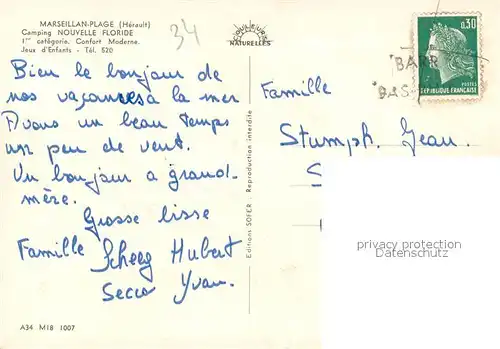 MARSEILLAN-PLAGE (Hérault)
Camping NOUVELLE FLORIDE
1re catégorie. Confort Moderne.
Jeux d'Enfants - Tél. 520
34
COULEURS
NATURELLES
0,30
POSTES
RÉPUBLIQUE FRANÇAISE
BARR
BAS
Bien le bonjour de
nos vaçances à la mer
Avons un beau temps
un peu de vent.
Un bonjour a grand-
mère.
Grosse bisse
Famille Scheeg Hubert
Secco Yvan.
Editions SOFER - Reproduction Interdite
Famille
Stumph. Jean.
S
privacy protection
Datenschutz
A34 M18 1007